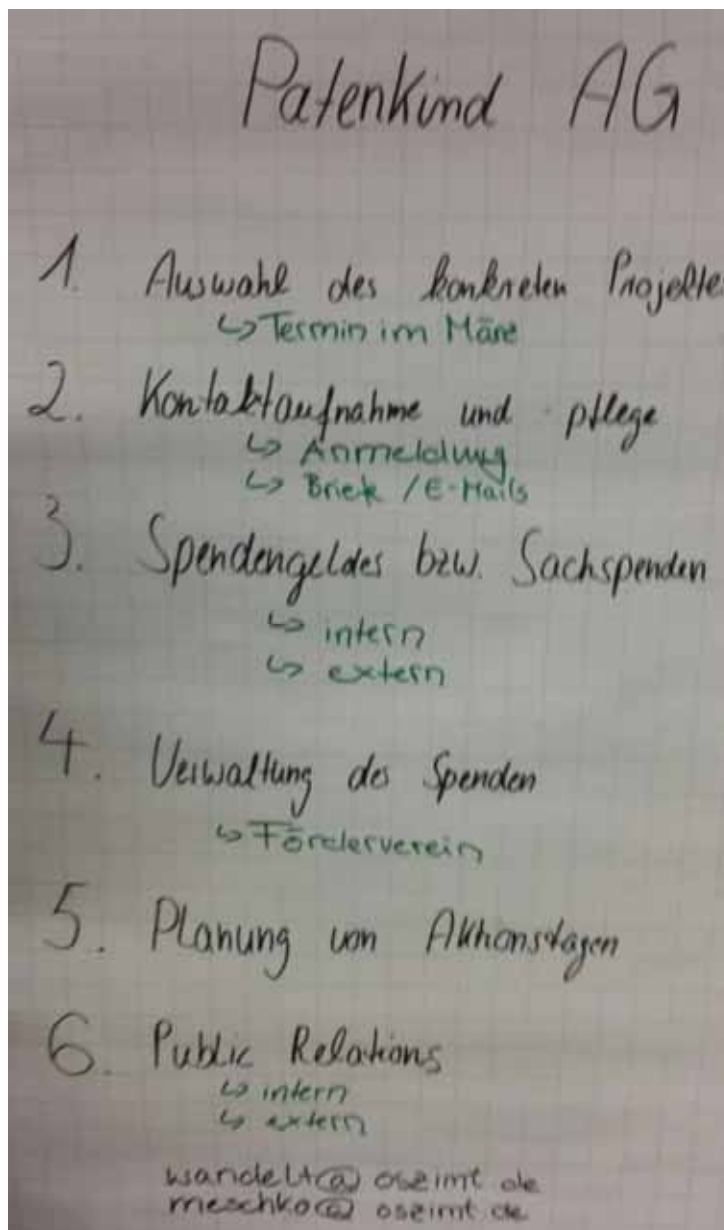 Patenkind AG
1. Auswahl des konkreten Projekte
↳ Termin im März
2. Kontaktaufnahme und - pflege
↳ Anmeldung
↳ Briefe / E-Mails
3. Spendengeldes bzw. Sachspenden
↳ intern
↳ extern
4. Verwaltung der Spenden
↳ Förderverein
5. Planung von Aktionstagen
6. Public Relations
↳ intern
↳ extern
wandelt@oszimt.de
meschko@oszimt.de